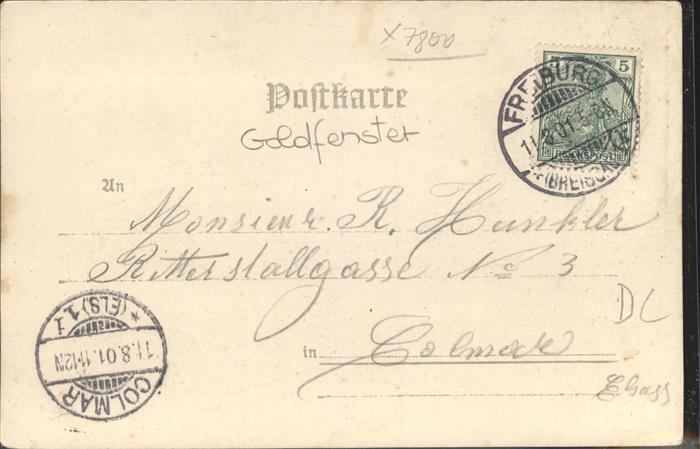 x7800
5
Postkarte
REICHSPOST
FREIBURG
11.8.01.
(BREISGAU)
Goldfenster
An
Monsieur. R. Hunkler
Ritterstallgasse No 3
DC
in Colmar
Elsass
*(ELS) 1.
11.8.01.11-12N
COLMAR